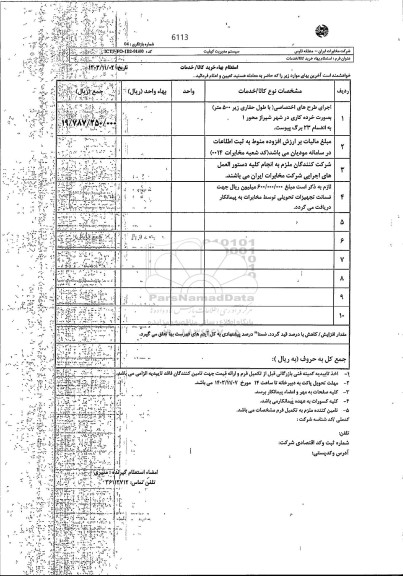 6113
شرکت مخابرات ایران - منطقه فارس
سیستم مدیریت کیفیت
شماره بازنگری: 04
عنوان فرم: استعلام بهاء خرید کالا/خدمات
استعلام بهاء خرید کالا/ خدمات
تاریخ: ۱۴۰۳/۱۱/۰۲
خواهشمند است آخرین بهای موارد زیر را که حاضر به معامله هستید تعیین و اعلام فرمائید.
ردیف
مشخصات نوع کالا/خدمات
واحد
بهاء واحد (ریال)
جمع (ریال)
۱
اجرای طرح های اختصاصی( با طول حفاری زیر ۵۰۰ متر)
بصورت خرده کاری در شهر شیراز محور ۱
به انضمام ۳۳ برگ پیوست.
۱۹/۷۸۷/۲۵۰/۰۰۰
۲
مبلغ مالیات بر ارزش افزوده منوط به ثبت اطلاعات
در سامانه مودیان می باشد(کد شعبه مخابرات ۰۰۱۴)
۳
شرکت کنندگان ملزم به انجام کلیه دستور العمل
های اجرایی شرکت مخابرات ایران می باشند.
۴
لازم به ذکر است مبلغ ۶۰۰/۰۰۰/۰۰۰ میلیون ریال جهت
ضمانت تجهیزات تحویلی توسط مخابرات به پیمانکار
دریافت می گردد.
۵
۶
۷
۸
۹
۱۰
ParsNamadData
مقدار افزایش/ کاهش با درصد قید گردد، ضمنا" درصد پیشنهادی به کل آیتم های فهرست بهاء تعلق می گیرد.
جمع کل به حروف (به ریال):
۱- اخذ تاییدیه کمیته فنی بازرگانی قبل از تکمیل فرم و ارائه قیمت جهت تامین کنندگان فاقد تاییدیه الزامی می باشد.
۲- مهلت تحویل پاکت به دبیرخانه تا ساعت ۱۴ مورخ ۱۴۰۳/۱۱/۰۷ می باشد.
۳- کلیه صفحات به مهر و امضاء پیمانکار برسد.
۴- کلیه کسورات به عهده پیمانکار می باشد.
۵- تامین کننده ملزم به تکمیل فرم مشخصات می باشد.
کدملی /کد شناسه شرکت:
تلفن:
شماره ثبت وکد اقتصادی شرکت:
آدرس وکدپستی:
امضاء استعلام گیرنده:
تلفن تماس: